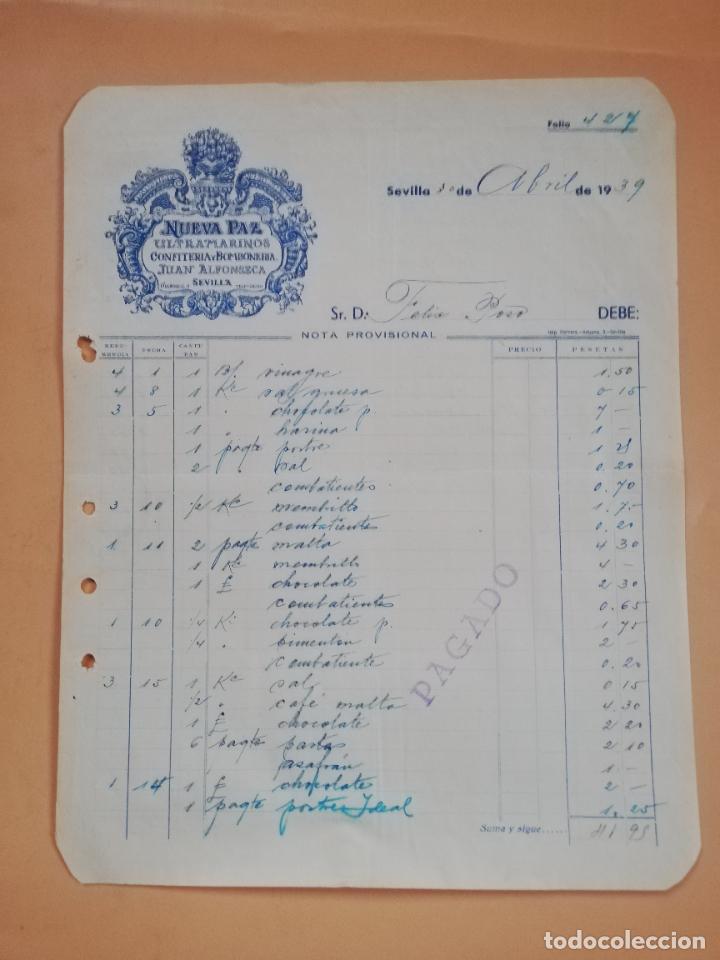 Folio 427
Sevilla 30 de Abril de 1939
NUEVA PAZ
ULTRAMARINOS
CONFITERIA Y BOMBONERIA
JUAN ALFONSECA
SEVILLA
Sr. D: Felix Poso DEBE:
NOTA PROVISIONAL
REFERENCIA FECHA CANTIDAD PRECIO PESETAS
4 1 1 Bl vinagre 1.50
4 8 1 Kº sal gruesa 0 15
3 5 1 " chocolate p. 7 —
1 " harina 1 —
1 paqte postre 1 25
2 " sal 0.20
combatientes 0.70
3 10 1/2 Kº membillo 1.75
combatientes 0.20
1 11 2 paqte malta 4 30
1 Kº membillo 4 —
1 £ chocolate 2 30
combatientes 0.65
1 10 1/4 Kº chocolate p. 1 75
1/4 " pimenton 2 —
combatiente 0.20
3 15 1 Kº sal 0 15
1/2 " café malta 4.30
1 £ chocolate 2 20
6 paqte pastas 2 10
azafrán 1 —
1 14 1 £ chocolate 2 —
1 paqte postres Ideal 1.25
Suma y sigue...... 41 95
PAGADO
todocoleccion
todocoleccion.net